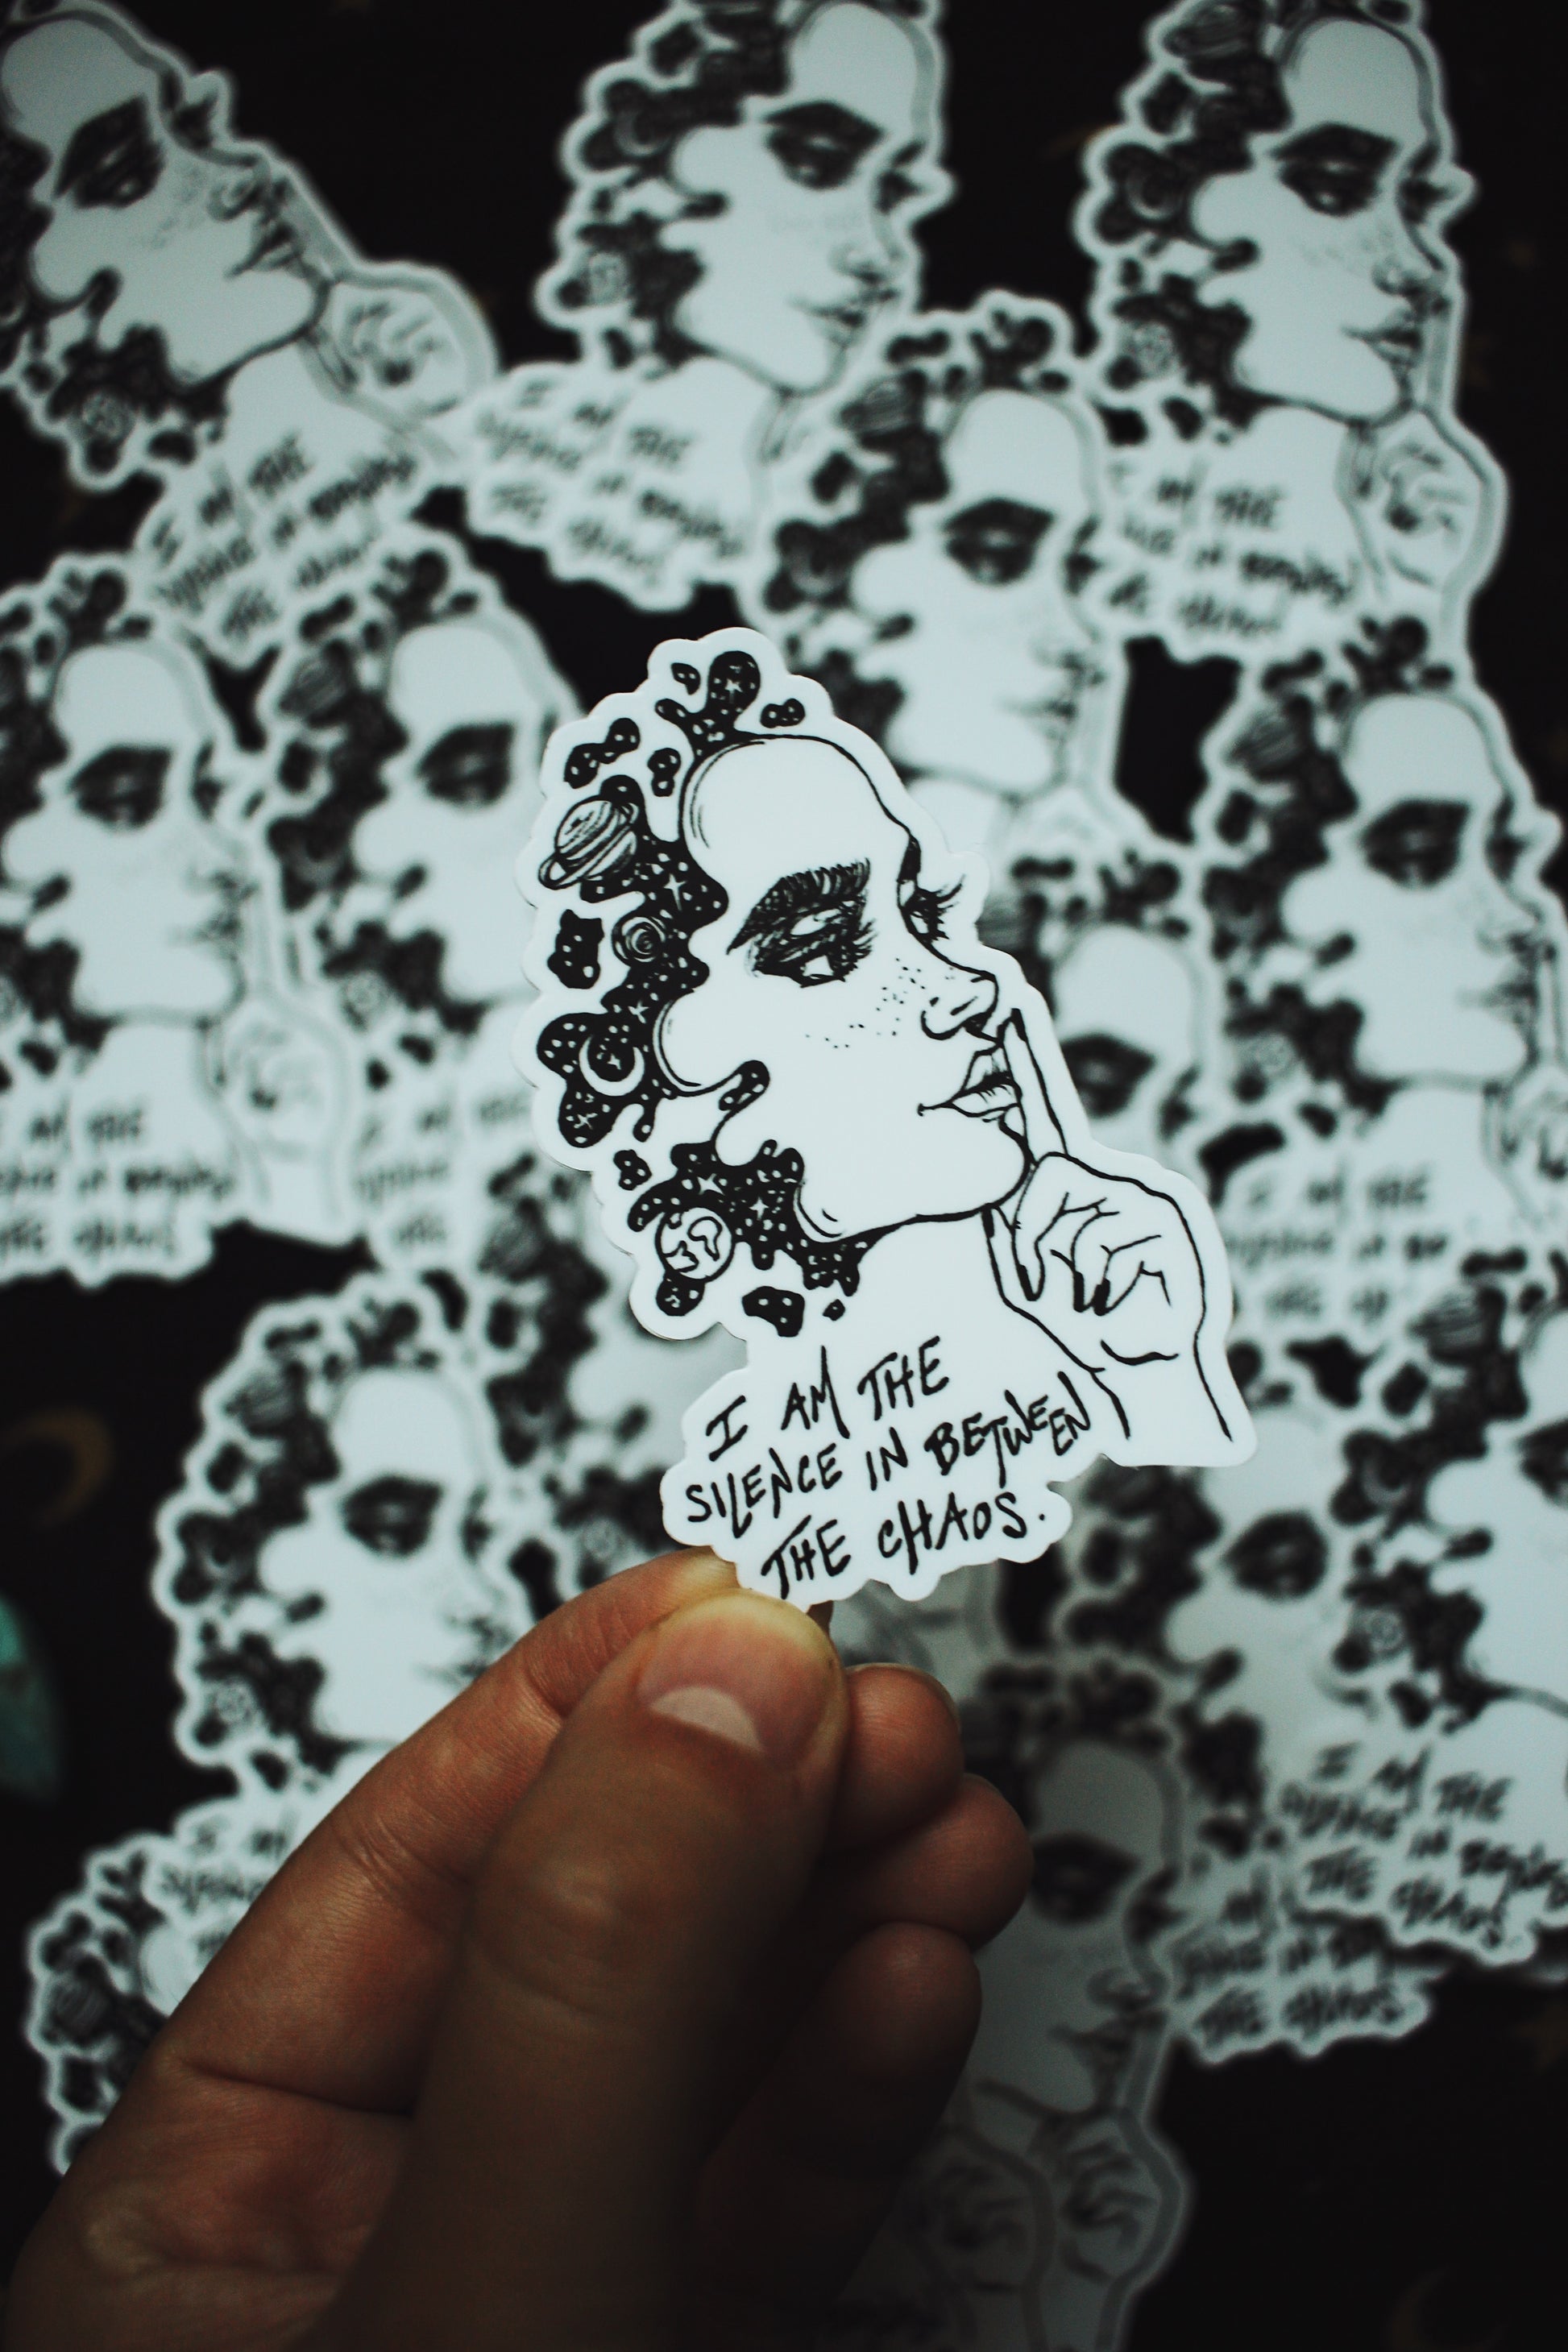 I AM THE
SILENCE IN BETWEEN
THE CHAOS.